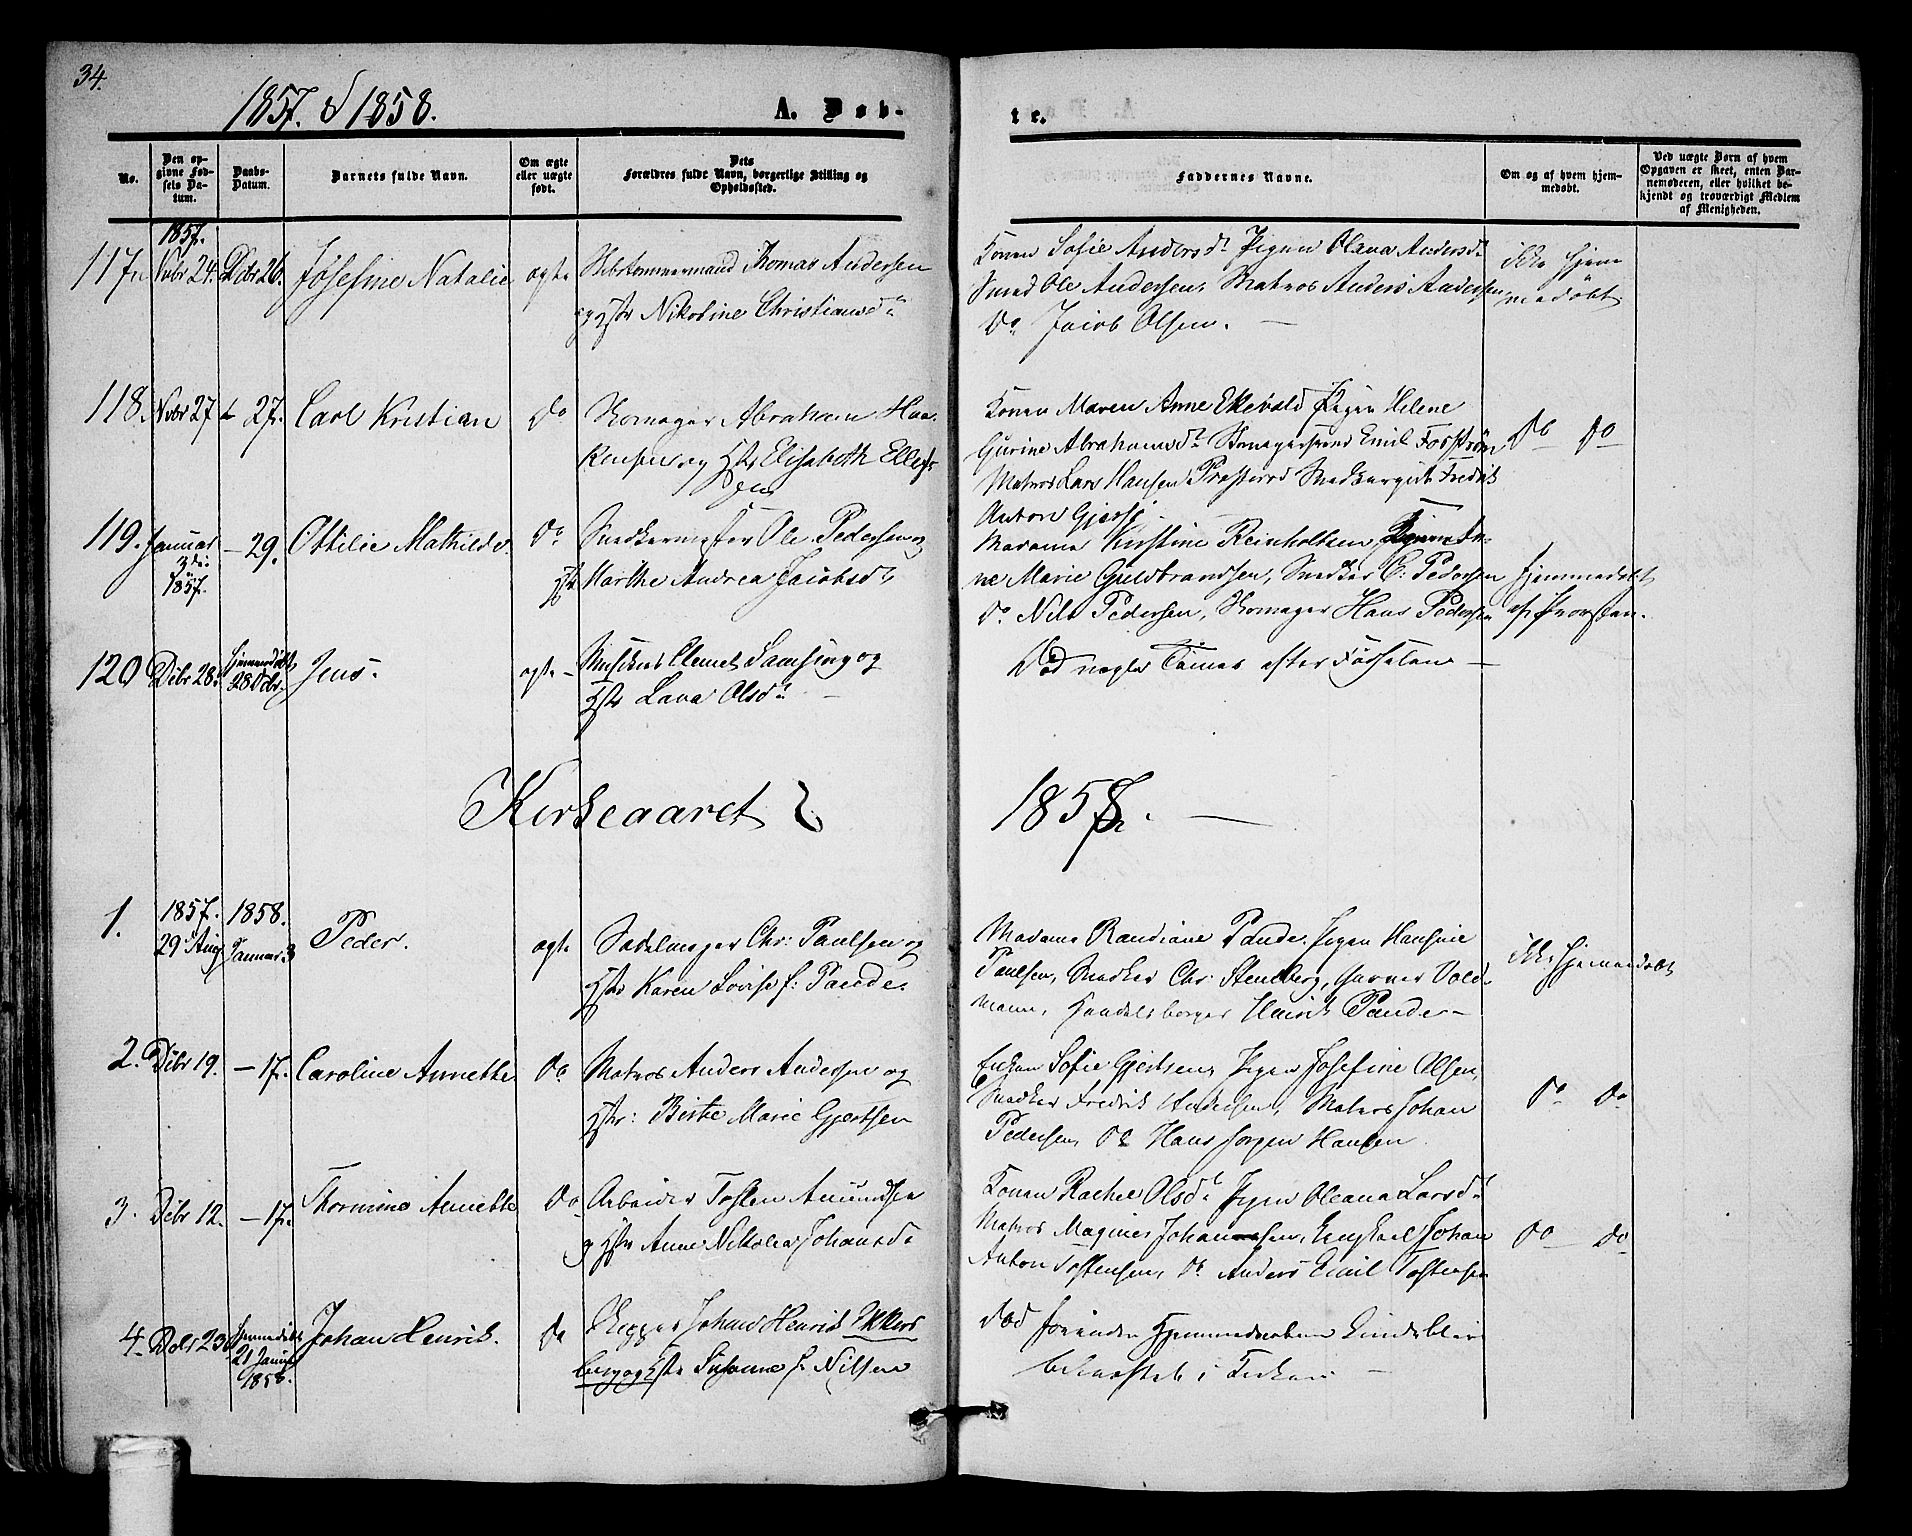 34.
1857. & 1858.
A. Døb-
te.
No.
Den op-
givne Fød-
sels Da-
tum.
Daabs-
Datum.
Barnets fulde Navn.
Om ægte
eller uægte
født.
Dets
Forældres fulde Navn, borgerlige Stilling og
Opholdssted.
Faddernes Navne.
Om og af hvem hjem-
medøbt.
Ved uægte Børn af hvem
Opgaven er skeet, enten Bar-
nemoderen, eller hvilket be-
kjendt og troværdigt Medlem
af Menigheden.
1857.
117. Nvbr 24. Dcbr 26. Josefine Natalie ægte Thomas Andersen
og Hstr Nikoline Christiansdr
Konen Sofie Andersdr Pigen Olava Andersdr
Smed Ole Andersen, Matros Anders Andersen
Do Jacob Olsen. —
ikke hjem
medøbt
118. Nvbr 27 27. Carl Kristian do Skomager Abraham Haa-
kensen og Hstr Elisabeth Ellefs
sen
Konen Maren Anne Ekevald Pigen Helene
Gurine Abrahamsdr Skomagersvend Emil Forsstrøm
Matros Lars Hansen Fredrik
Anton
do do
119. Januar
3de
1857.
— 29. Ottilie Mathilde. do Snedkermester Ole Pedersen og
Hstr Marthe Andrea Jacobsdr
Madame Kirstine Reinholtsen An-
ne Marie Guldbrandsen, Snedker C. Pedersen
do Nils Pedersen, Skomager Hans Pedersen
hjemmedøbt
af Provsten.
120 Dcbr 28. hjemmedøbt
28 Dcbr.
Jens. ægte - Musikus Clemet Samsing og
Hstr Lava Olsdr —
Død nogle Timer efter Fødselen —
Kirkeaaret
1858. —
1. 1857.
29 Aug
1858.
Januar 3
Peder. ægte Sadelmager Chr: Paulsen og
Hstr Karen Lovise f: Pande.
Madame Randiane Pande. Pigen Hansine
Paulsen, Snedker Chr: Stenberg, Garver Vold-
mann, Handelsborger Henrik Pande –
ikke hjemmedøbt
2. Dcbr 19. — 17. Caroline Annette. do Matros Anders Andersen og
Hstr: Birthe Marie Gjertsen
Enken Sofie Gjertsen, Pigen Josefine Olsen,
Snedker Fredrik Andersen, Matros Johan
Pedersen, do Hans Jørgen Hansen
do do
3. Dcbr 12. — 17. Thormine Annette do Arbeider Tosten Amundsen
og Hstr Anne Nikolea Johansdr
Konen Rachel Olsdr Pigen Oleana Larsdr
Matros Maginus Johannesen, Ungkarl Johan
Anton Tostensen, do Anders Emil Tostensen
do do
4. Dcbr 23 hjemmedøbt
21 Januar
1858.
Johan Henrik. do Skipper Johan Henrik Ekkers
berg og Hstr Susanne f. Nilsen
død forinden Hjemmedaaben blev
bekræftet i Kirken —